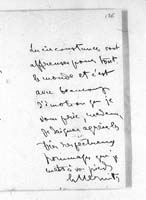 136
Les circonstances sont
affreuses pour tout
le monde et c'est
avec beaucoup
d'émotion que je
vous prie, madame,
de daigner agréer les
plus respectueux
hommages que je
mets à vos pieds